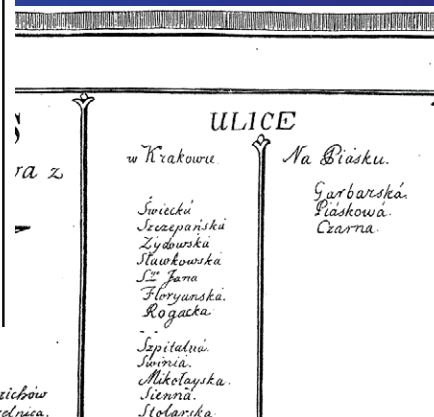 ULICE
w Krakowie.
Świecká
Szczepańská
Zydowská
Sławkowská
S<sup>go</sup> Jana
Floryanská.
Rogacka
Szpitalná.
Swinia.
Mikołayska.
Sienná.
Stolarska
Na Piásku.
Garbarská.
Piáskowá.
Czarna.